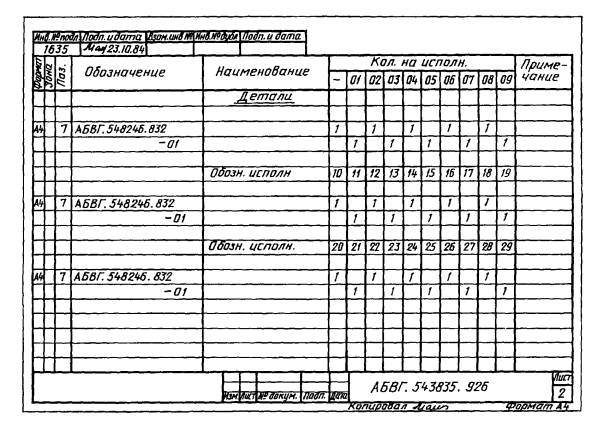 Инв.№подл Подп. и дата Взам.инв№ Инв.№дубл Подп. и дата
1635 23.10.84
Формат Зона Поз. Обозначение Наименование Кол. на исполн. Приме-
чание
– 01 02 03 04 05 06 07 08 09
Детали
А4 7 АБВГ.548246.832 1 1 1 1 1
-01 1 1 1 1 1
Обозн. исполн 10 11 12 13 14 15 16 17 18 19
А4 7 АБВГ.548246.832 1 1 1 1 1
-01 1 1 1 1 1
Обозн. исполн. 20 21 22 23 24 25 26 27 28 29
А4 7 АБВГ.548246.832 1 1 1 1 1
-01 1 1 1 1 1
АБВГ. 543835. 926
Лист
2
Изм Лист № докум. Подп. Дата
Копировал Формат А4